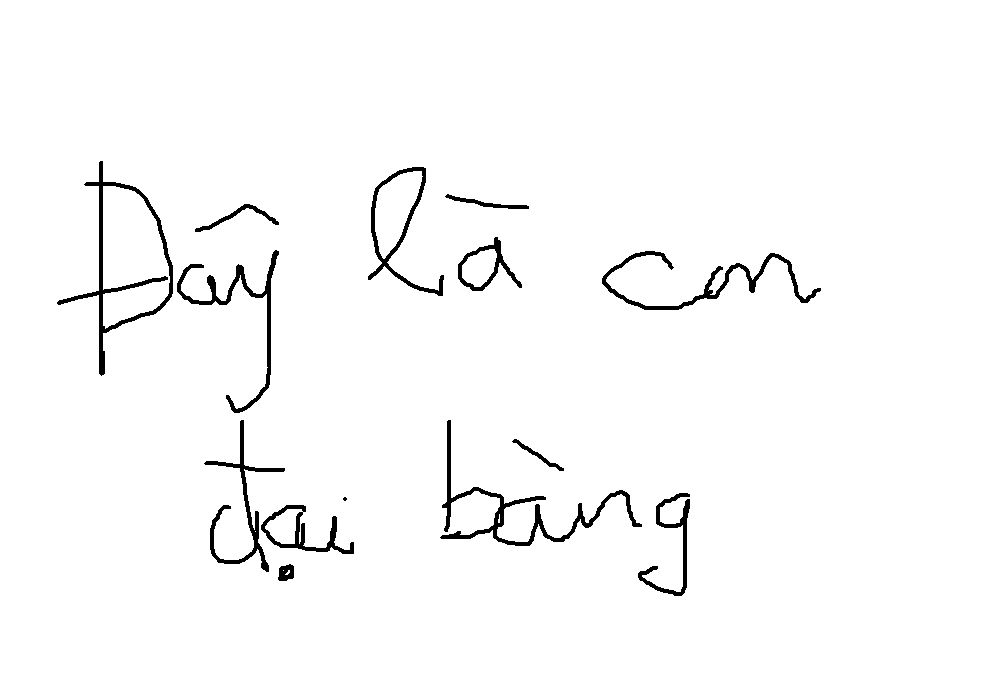 Đây là con
đại bàng